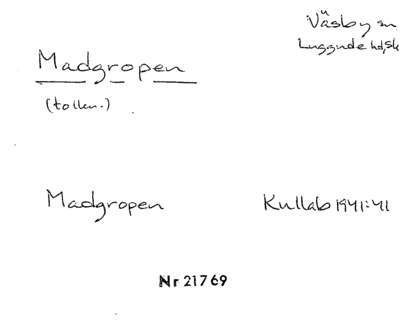 Väsby sn
Luggude hd, Sk
Madgropen
(tolkn.)
Madgropen Kullab 1941:41
Nr 21769